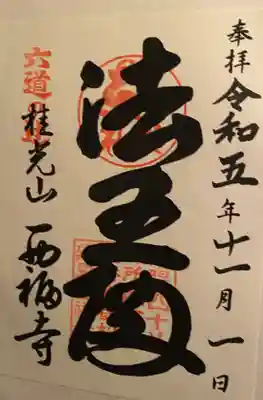 奉拝 令和五年十一月一日
法王殿
六道
桂光山 西福寺